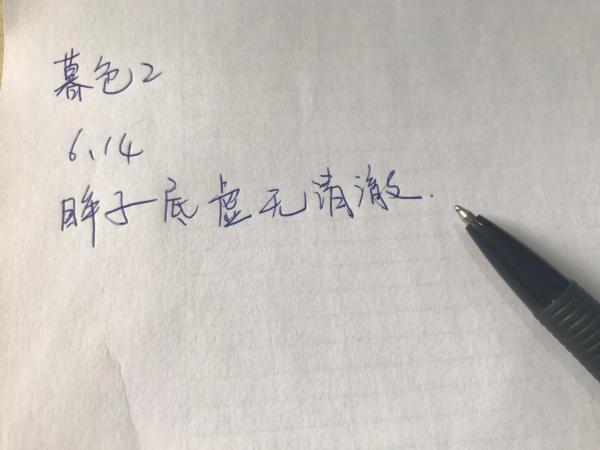 暮色2
6.14
眸子底虚无清澈.